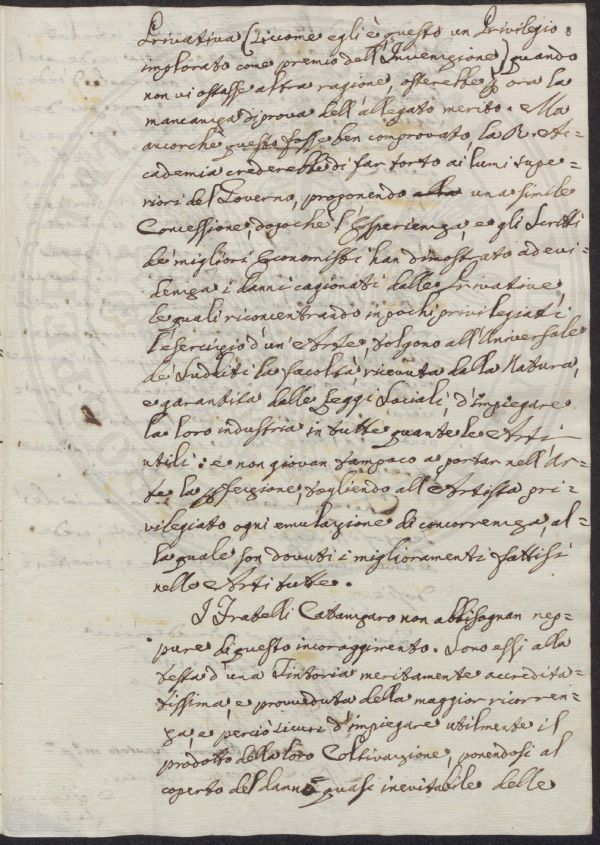 Privativa (siccome egli è questo un Privilegio
implorato come premio dell'Invenzione) quando
non vi ostasse altra ragione, osterebbe ora la
mancanza di prova dell'allegato merito. Ma
ancorchè questo fosse ben comprovato, la R. Ac=
cademia crederebbe di far torto ai lumi supe=
riori del Governo, proponendo una simile
Concessione, dopochè l'Esperienza, e gli Scritti
de' migliori Economisti han dimostrato ad evi=
denza i danni cagionati dalle Privative,
le quali riconcentrando in pochi privilegiati
l'esercizio d'un'Arte, tolgono all'Universale
de' Sudditi la facoltà, ricevuta dalla Natura,
e garantita dalle Leggi Sociali, d'impiegare
la loro industria in tutte quante le Arti
utili: e non giovan tampoco a portar nell'Ar=
te la pfezione, togliendo all'Artista pri=
vilegiato ogni emulazione di concorrenza, al=
la quale son dovuti i miglioramenti fattisi
nelle Arti tutte.
I Fratelli Catanzaro non abbisognan nep=
pure di questo incoraggimento. Sono essi alla
testa d'una Tintoria meritamente accredita=
tissima, e provveduta della maggior ricorren=
za, e perciò sicuri d'impiegare utilmente il
prodotto della loro Coltivazione, ponendosi al
coperto del danno quasi inevitabile delle